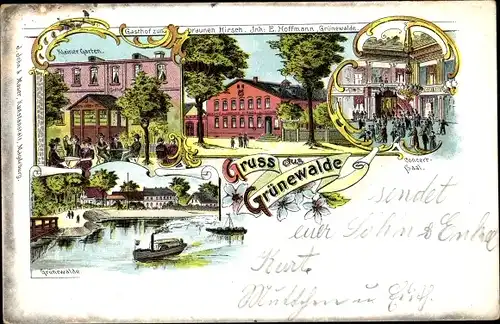 Gasthof zum braunen Hirsch. Inh: E. Hoffmann, Grünewalde.
Kleiner Garten.
Concert-
Saal.
Gruss aus
Grünewalde
Grünewalde
sendet
euer Sohn & Enkel
Kurt
und